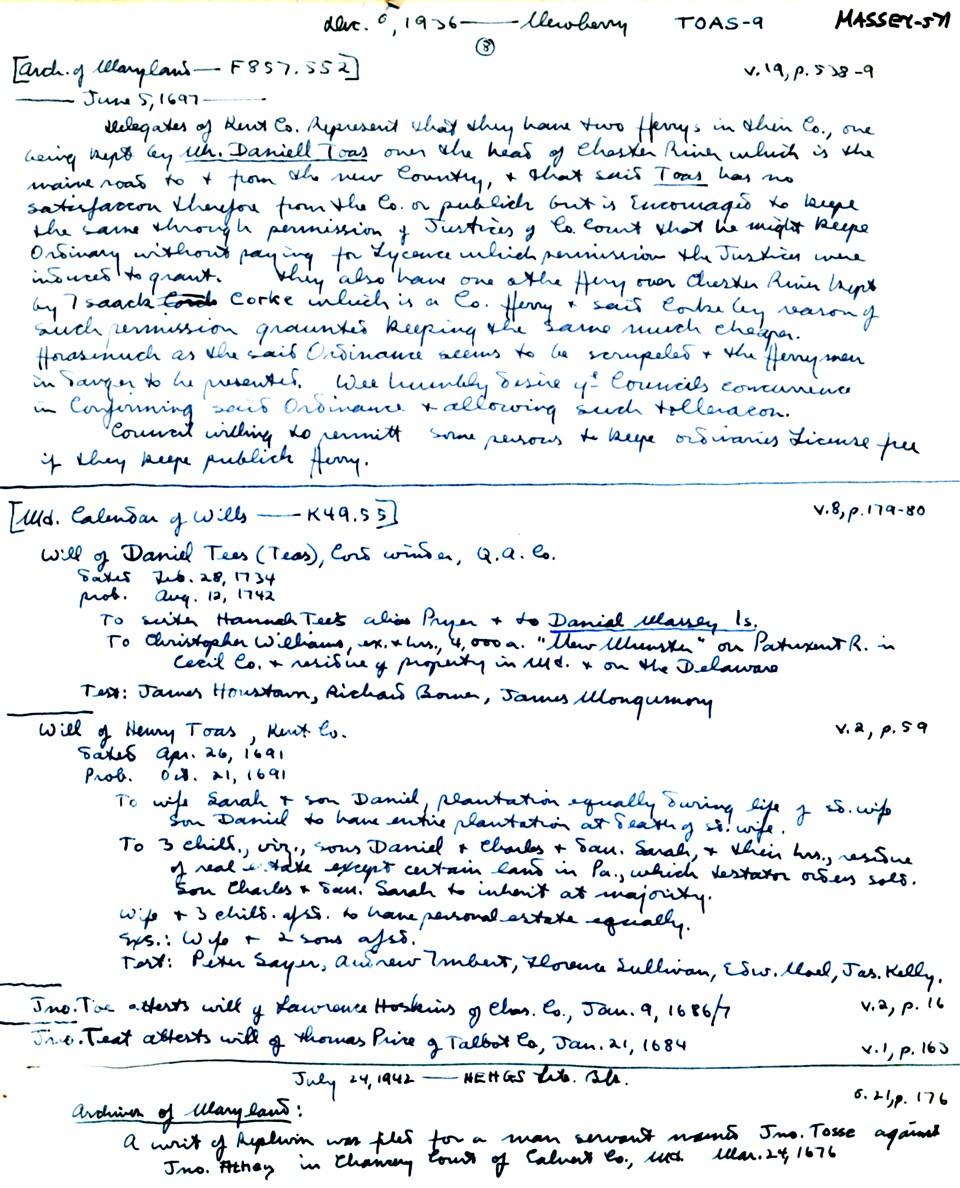 Dec. 5, 1936 —— Newberry TOAS-9 MASSEY-571
(8)
[Arch. of Maryland — F857.552] v.19, p.538-9
—— June 5, 1697 ——
Delegates of Kent Co. Represent that they have two Ferrys in their Co., one
being kept by Mr. Daniell Toas over the head of Chester River which is the
maine road to & from the new Country, & that said Toas has no
satisfaccon therefore from the Co. or publich but is Encouraged to keepe
the same through permission of Justices of Co. Court that he might keepe
Ordinary without paying for Lycence which permission the Justices were
induced to grant. They also have one othe Ferry over Chester River kept
by Isaack Corke which is a Co. Ferry & said Corke by reason of
such permission graunted keeping the same much cheaper.
Forasmuch as the said Ordinance seems to be scrupeled & the Ferrymen
in danger to be presented. Wee humbly desire yr Councils concurrence
in Confirming said Ordinance & allowing such tolleracon.
Council willing to permitt some persons to keepe ordinaries License free
if they keepe publick Ferry.
[Md. Calendar of Wills — K49.55] v.8, p.179-80
Will of Daniel Tees (Teas), Cord winder, Q.A. Co.
dated Feb. 28, 1734
prob. Aug. 12, 1742
To sister Hannah Tees alias Pryer & to Daniel Massey 1s.
To Christopher Williams, ex. & hrs., 4,000 a. "New Munster" on Patuxent R. in
Cecil Co. & residue of property in Md. & on the Delaware
Test: James Houstann, Richard Bomer, James Mongumory
Will of Henry Toas, Kent Co. v.2, p.59
dated Apr. 26, 1691
Prob. Oct. 21, 1691
To wife Sarah & son Daniel, plantation equally during life of sd. wife
Son Daniel to have entire plantation at death of sd. wife.
To 3 child., viz., sons Daniel & Charles & dau. Sarah, & their hrs., residue
of real estate except certain land in Pa., which testator orders sold.
Son Charles & dau. Sarah to inherit at majority.
Wife & 3 child. afsd. to have personal estate equally.
Exs.: Wife & 2 sons afsd.
Test: Peter Sayer, Andrew Imbert, Florence Sullivan, Edw. Mael, Jas. Kelly.
Jno. Toe attests will of Lawrence Hoskins of Chas. Co., Jan. 9, 1686/7 v.2, p.16
Jno. Teat attests will of Thomas Prire of Talbot Co, Jan. 21, 1684 v.1, p.163
July 24, 1942 — NEHGS Lib. Bk.
Archives of Maryland: 21, p.176
A writ of Replevin was filed for a man servant named Jno. Tosse against
Jno. Athey in Chancery Court of Calvert Co., Md. Mar. 24, 1676